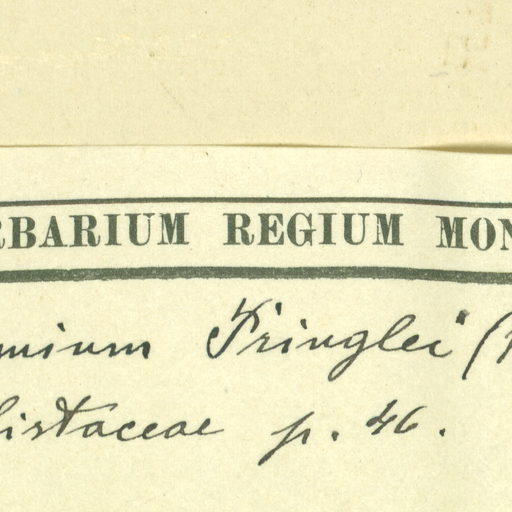 RBARIUM REGIUM MON
mium Pringlei (
listaceae p. 46.